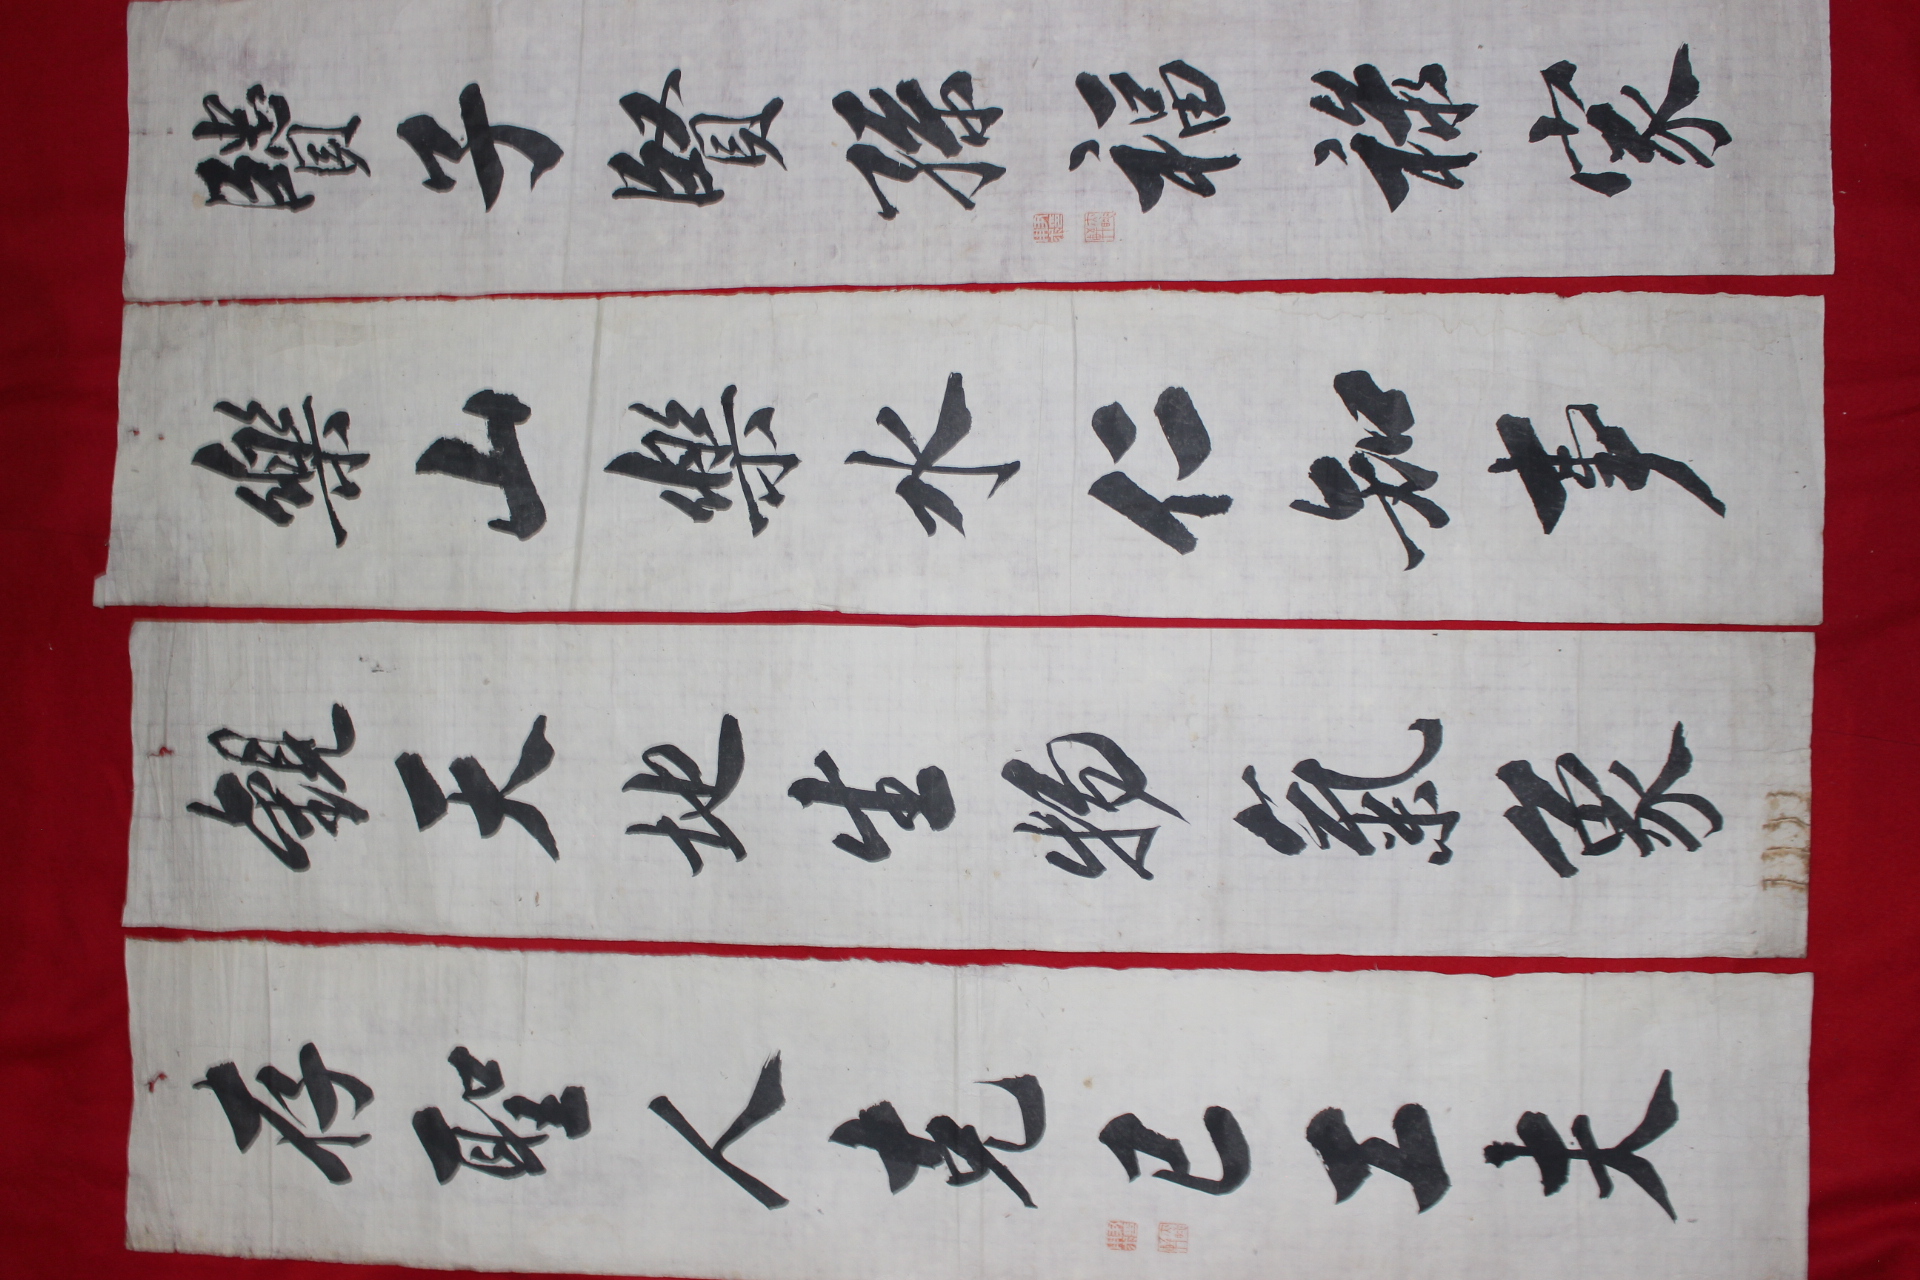 贒子賢孫福祿家
樂山樂水仁知事
觀天地生物氣象
存聖人克己工夫